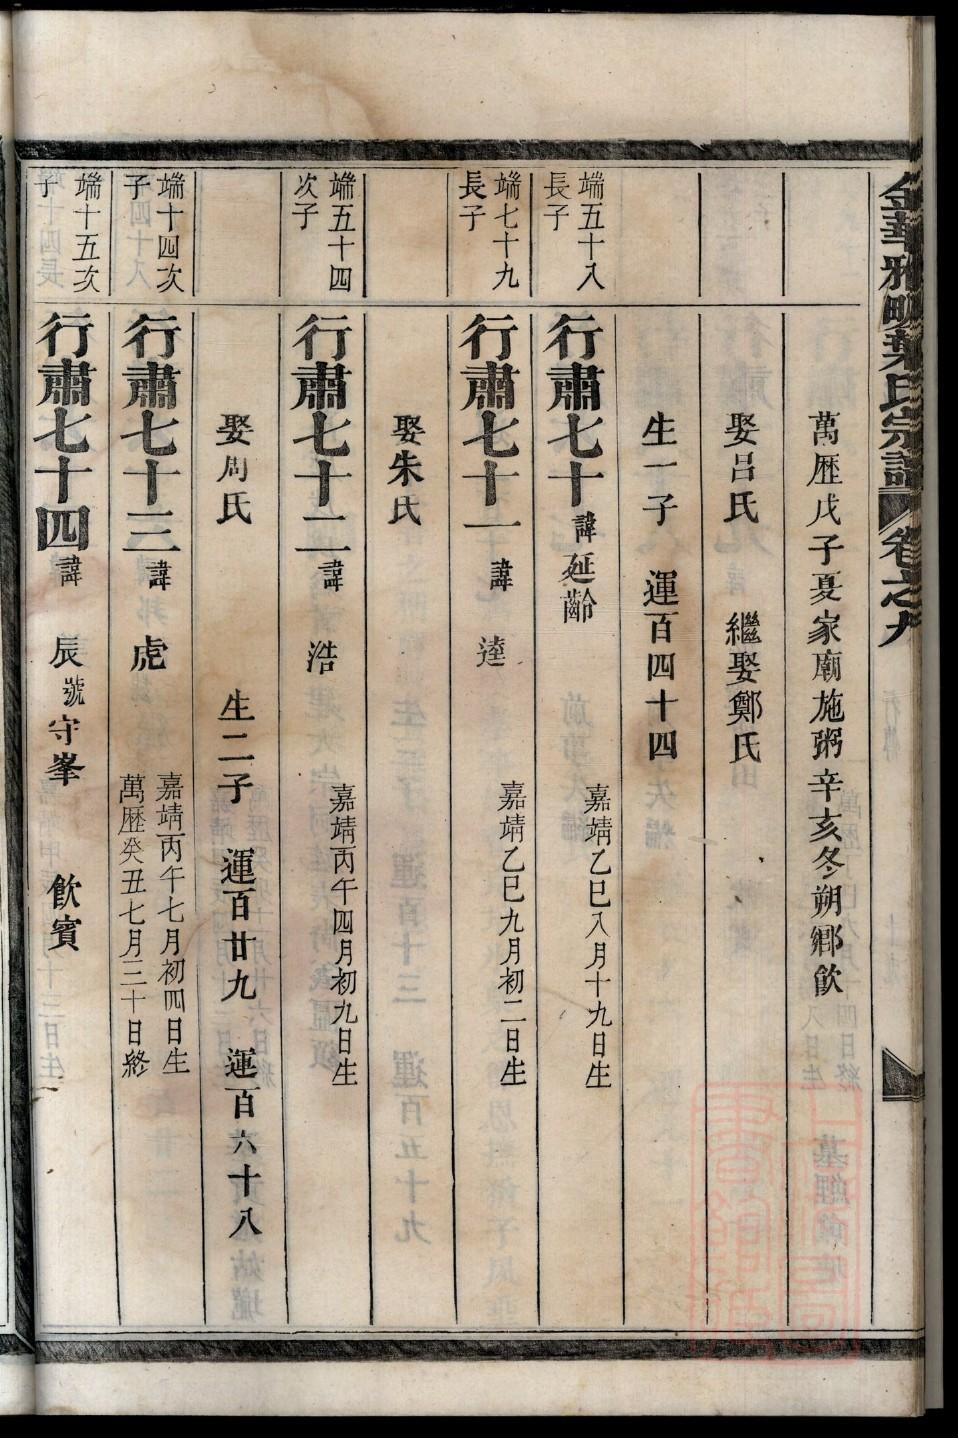 金華雅畈葉氏宗譜 卷之九
萬歷戊子夏家廟施粥辛亥冬朔鄉飲
娶呂氏 繼娶鄭氏
生一子 運百四十四
端五十八
長子
行肅七十 諱延齡 嘉靖乙巳八月十九日生
端七十九
長子
行肅七十一 諱達 嘉靖乙巳九月初二日生
娶朱氏
端五十四
次子
行肅七十二 諱浩 嘉靖丙午四月初九日生
娶周氏 生二子 運百廿九 運百六十八
端十四次
子
行肅七十三 諱虎 嘉靖丙午七月初四日生
萬歷癸丑七月三十日終
端十五次
子
行肅七十四 諱辰 號守峯 飲賓